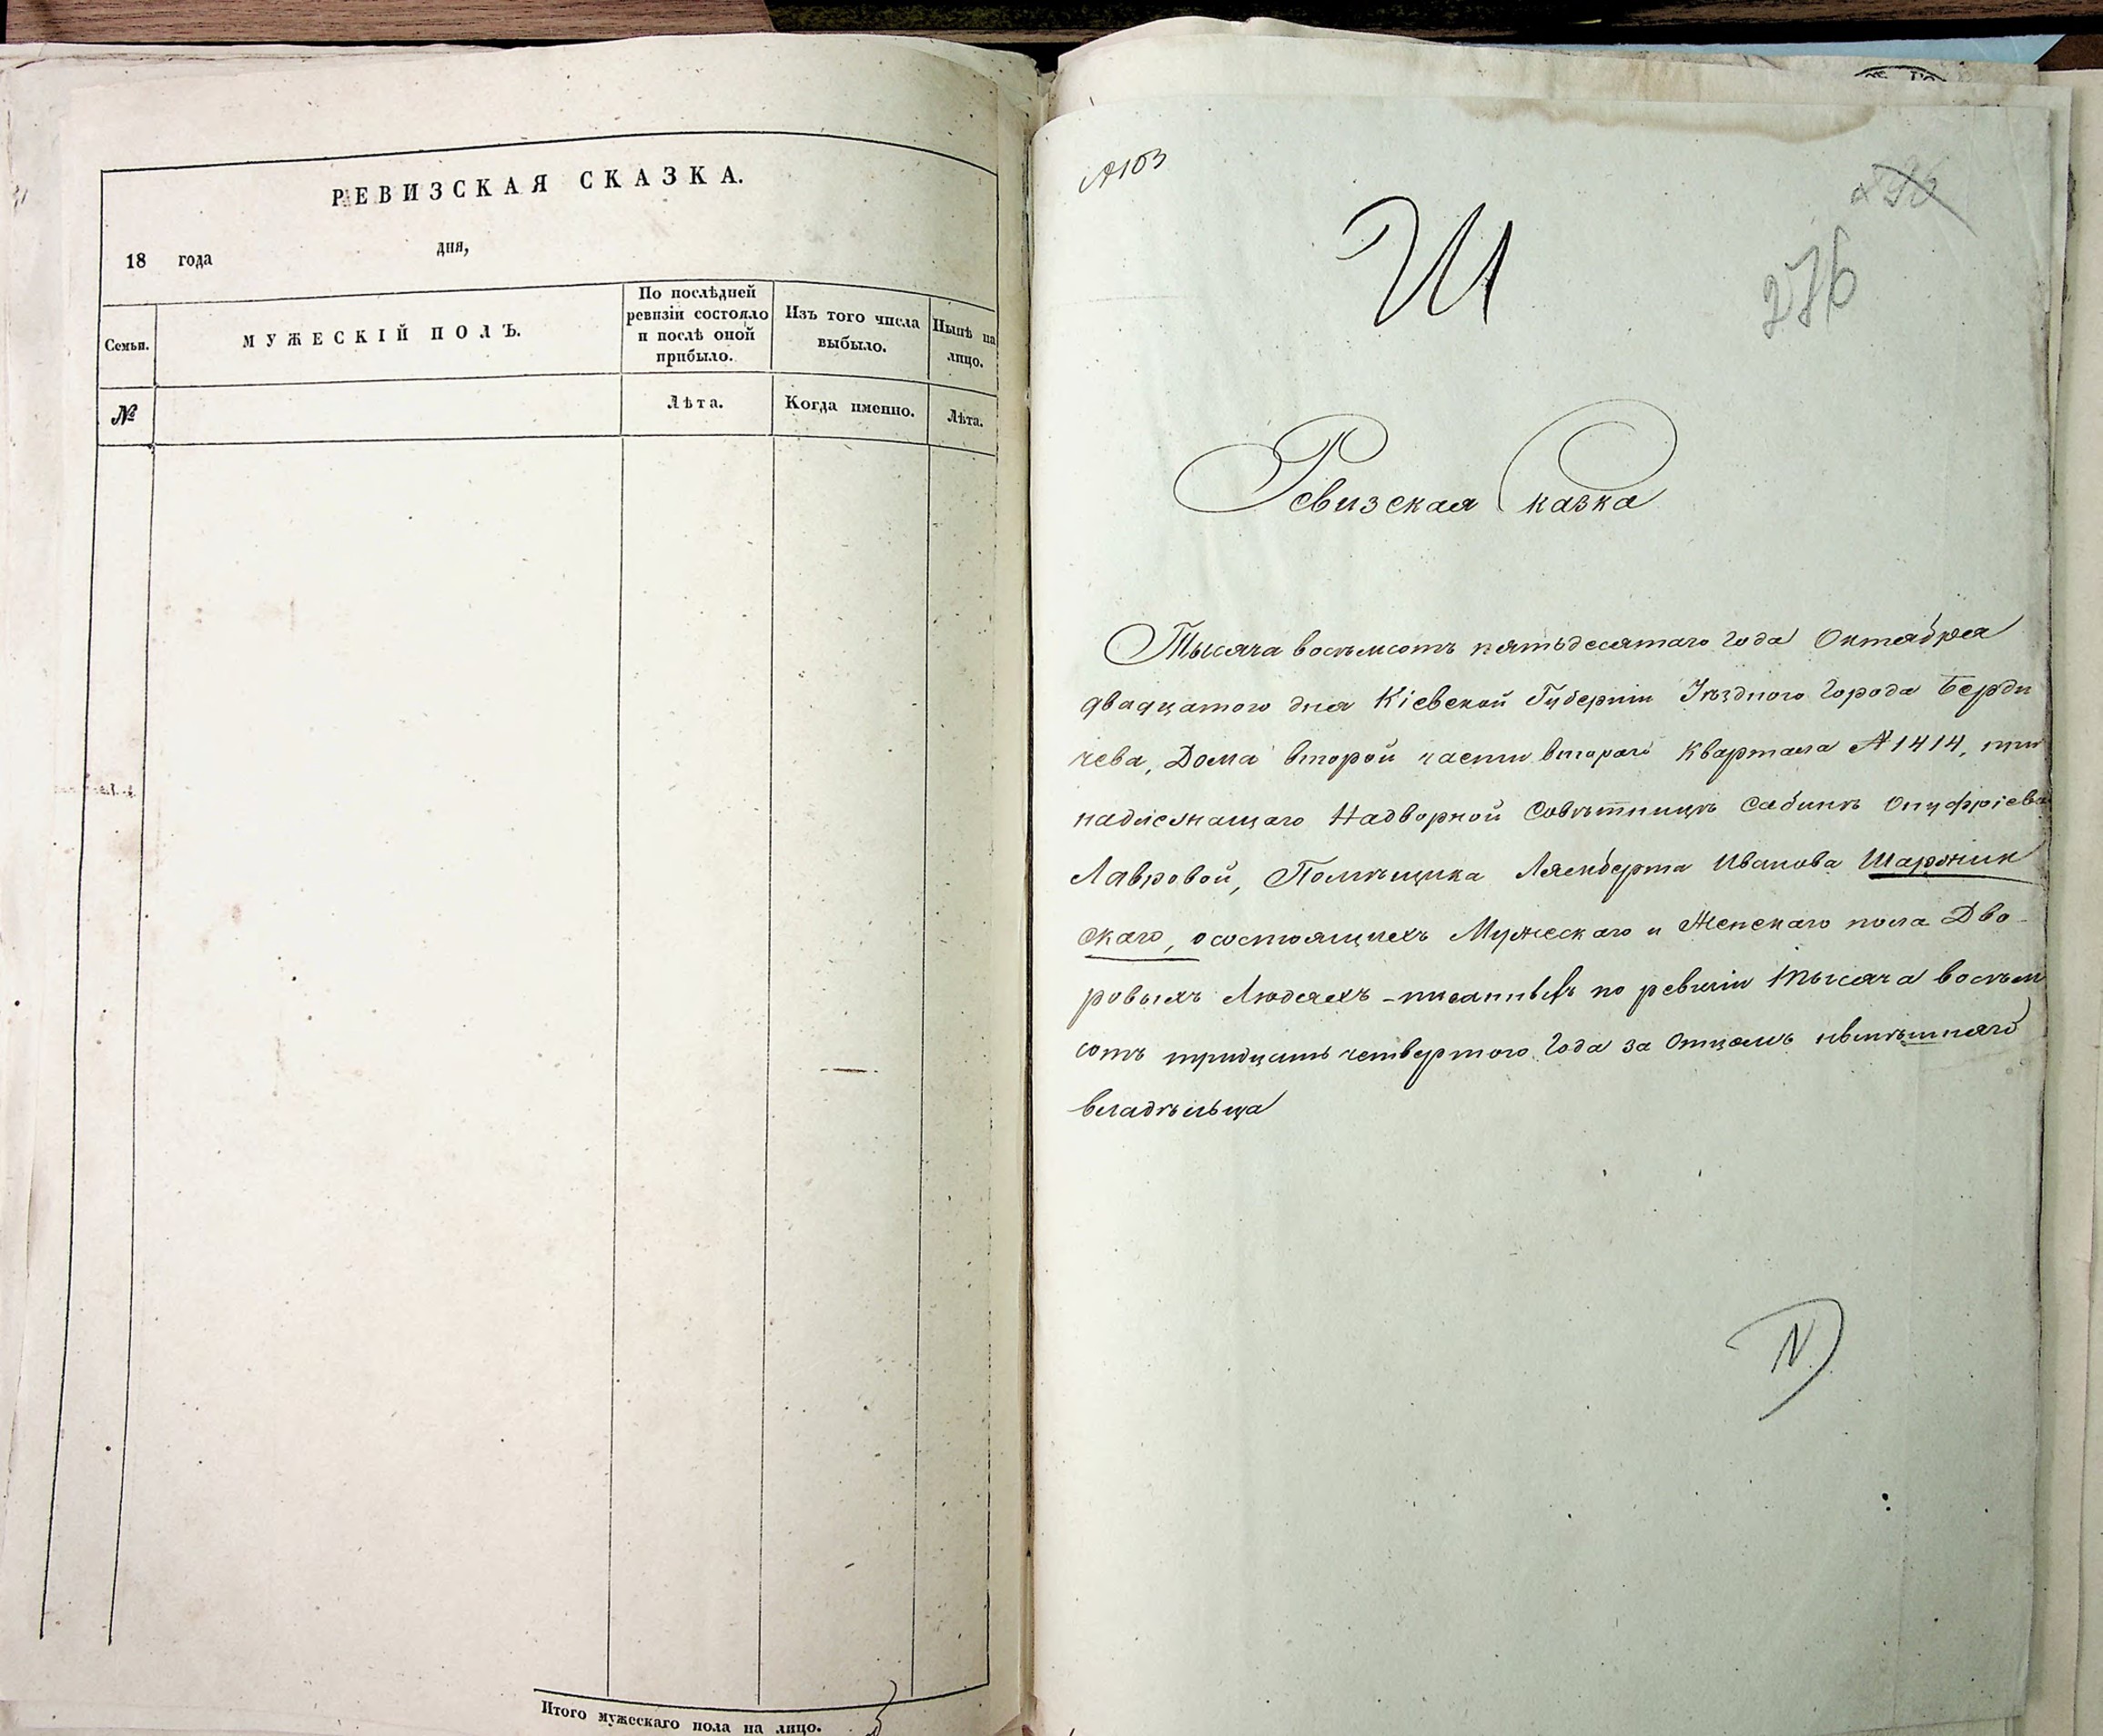 РЕВИЗСКАЯ СКАЗКА.
18 года дня,
Семьи.
МУЖЕСКІЙ ПОЛЪ.
По послѣдней
ревизіи состояло
и послѣ оной
прибыло.
Изъ того числа
выбыло.
Нынѣ на
лицо.
№
Лѣта.
Когда именно.
Лѣта.
Итого мужескаго пола на лицо.
№103
Ш
276
Ревизская Сказка
Тысяча восѣмсотъ пятьдесятаго года Октября
двадцатого дня Кіевской Губерніи Уѣздного Города Берди
чева, Дома второй части втораго Квартала №1414, при
надлежащаго Надворной Совѣтницѣ Сабинѣ Онуфріева
Лавровой, Помѣщика Лямберта Иванова Шаржин
скаго, о состоящихъ Мужескаго и Женскаго пола Дво-
ровыхъ Людяхъ по ревизіи тысяча восѣм
сотъ тридцать четвертого Года за Отцомъ нынѣшняго
владѣльца